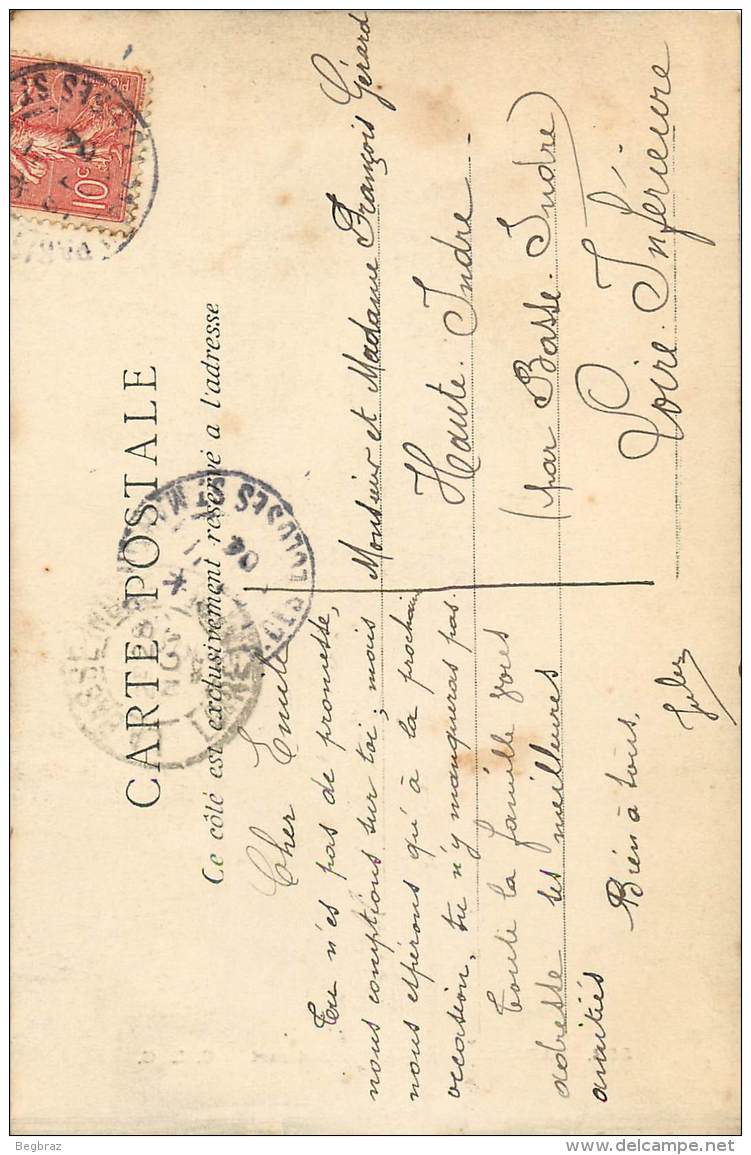 CARTE POSTALE
Ce côté est exclusivement réservé a l'adresse
Cher Emile
Tu n'es pas de promesse,
nous comptions sur toi; mais
nous espérons qu'à la prochaine
occasion, tu n'y manqueras pas.
Toute la famille vous
adresse ses meilleures
amitiés
Bien à tous.
Jules
Monsieur et Madame François Gérard
Haute-Indre
(par Basse-Indre)
Loire-Inférieure
10c
04
PARIS
BASSE
04
DES ECLUSES ST M
Begbraz
delcampe.net